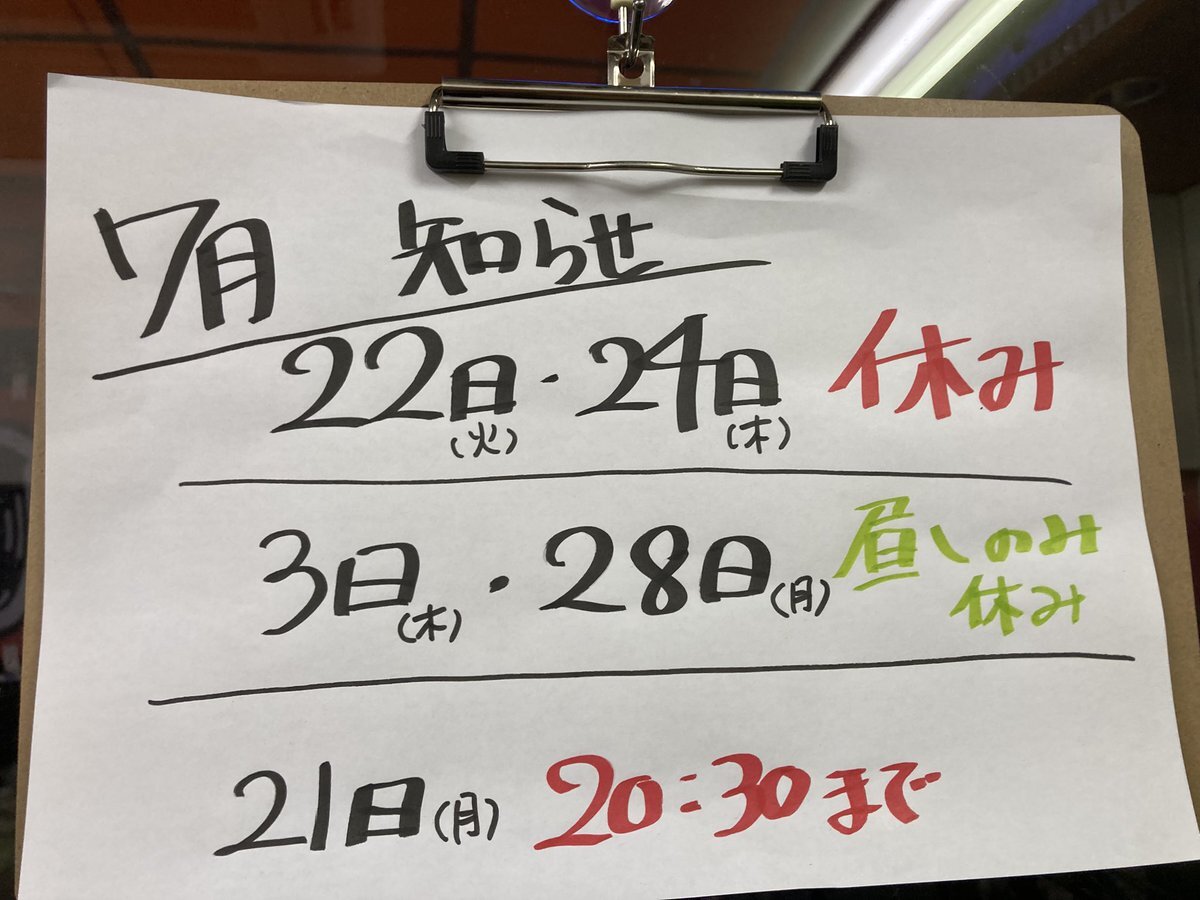 7月 知らせ
22日(火)・24日(木) 休み
3日(木)・28日(月) 昼しのみ
休み
21日(月) 20:30まで